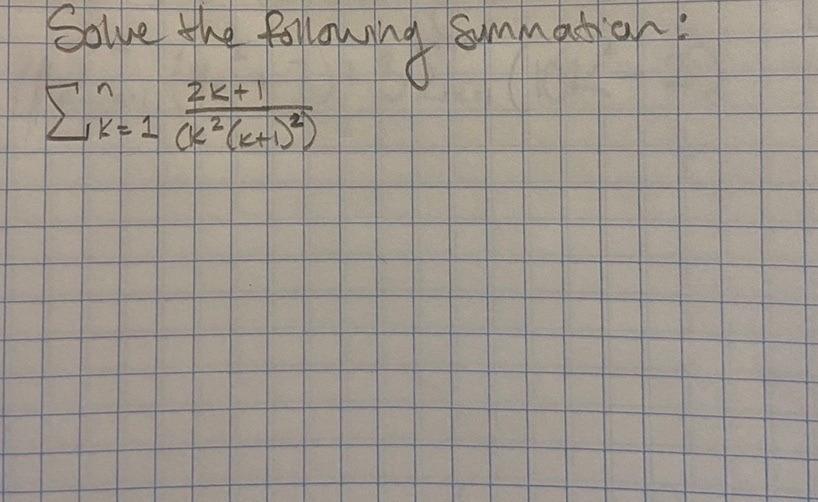 Solve the following Summation:
∑ⁿₖ₌₁ (2k+1)/(k²(k+1)²)